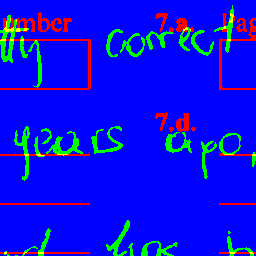 umber 7.a. Pag
tty correct
7.d.
years ago,
has